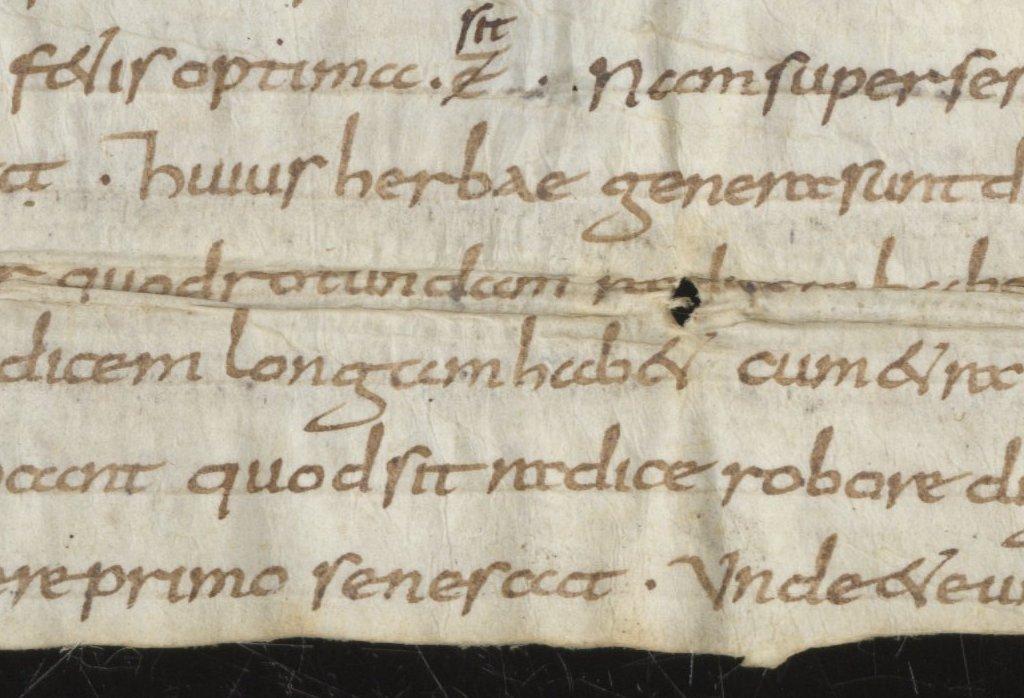 sit
felis optima . Z . . Nam super ser
at . huius herbae genera sunt d
quod rotundam radicem habe
dicem longam habet cum et ra
cant quod sit radice robore di
ore primo senescat . Unde et eu